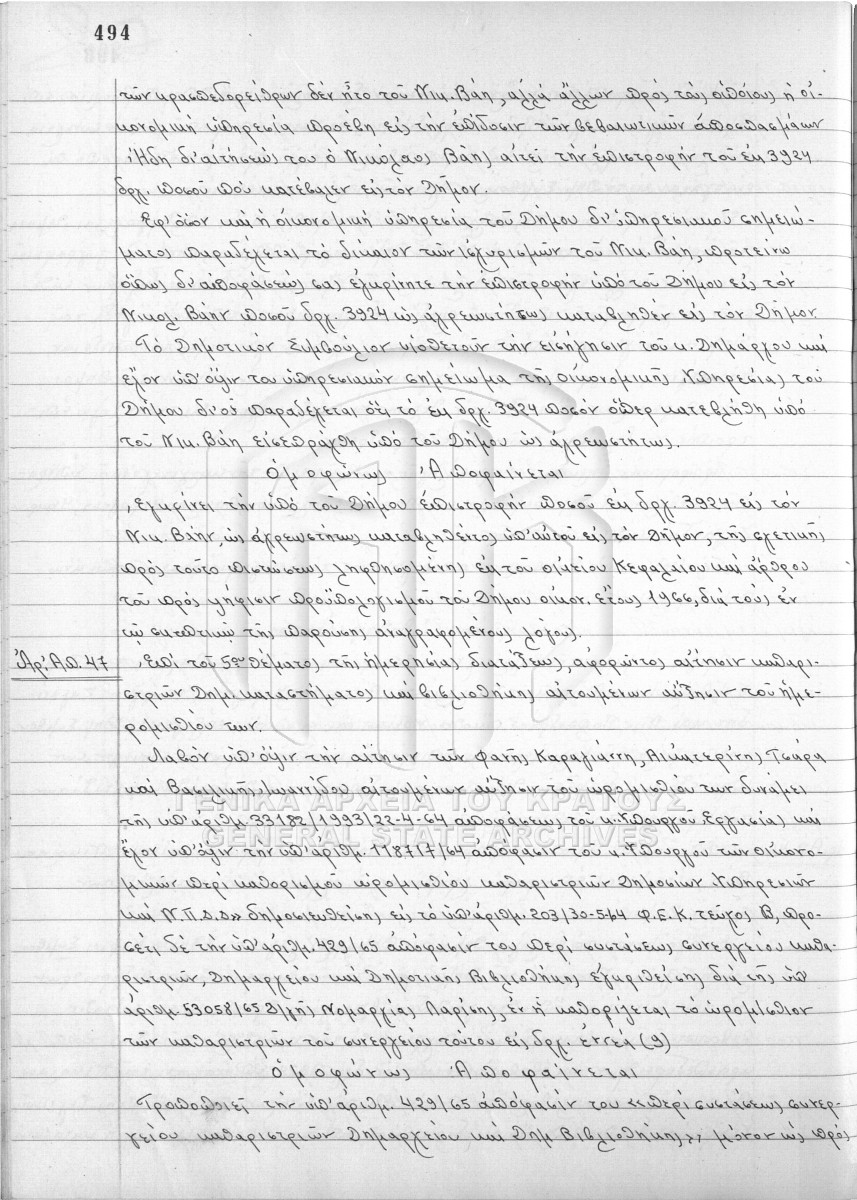 494
τῶν κρασπεδορείθρων δέν ἦτο τοῦ Νικ. Βάη, ἀλλά ἄλλων πρός τούς ὁποίους ἡ οἰ-
κονομική ὑπηρεσία προέβη εἰς τήν ἐπίδοσιν τῶν βεβαιωτικῶν ἀποσπασμάτων
Ἤδη δι' αἰτήσεώς του ὁ Νικόλαος Βάης αἰτεῖ τήν ἐπιστροφήν τοῦ ἐκ 3924
δρχ. ποσοῦ πού κατέβαλεν εἰς τόν Δῆμον.
Ἐφ' ὅσον καί ἡ οἰκονομική ὑπηρεσία τοῦ Δήμου δι' ὑπηρεσιακοῦ σημειώ-
ματος παραδέχεται τό δίκαιον τῶν ἰσχυρισμῶν τοῦ Νικ. Βάη, προτείνω
ὅπως δι' ἀποφάσεώς σας ἐγκρίνητε τήν ἐπιστροφήν ὑπό τοῦ Δήμου εἰς τόν
Νικολ. Βάην ποσοῦ δρχ. 3924 ὡς ἀχρεωστήτως καταβληθέν εἰς τόν Δῆμον
Τό Δημοτικόν Συμβούλιον υἱοθετοῦν τήν εἰσήγησιν τοῦ κ. Δημάρχου καί
ἔχον ὑπ' ὄψιν του ὑπηρεσιακόν σημείωμα τῆς οἰκονομικῆς Ὑπηρεσίας τοῦ
Δήμου δι' οὗ παραδέχεται ὅτι τό ἐκ δρχ. 3924 ποσόν ὅπερ κατεβλήθη ὑπό
τοῦ Νικ. Βάη εἰσεπράχθη ὑπό τοῦ Δήμου ὡς ἀχρεωστήτως.
Ὁμοφώνως Ἀποφαίνεται
Ἐγκρίνει τήν ὑπό τοῦ Δήμου ἐπιστροφήν ποσοῦ ἐκ δρχ. 3924 εἰς τόν
Νικ. Βάην, ὡς ἀχρεωστήτως καταβληθέντος ὑπ' αὐτοῦ εἰς τόν Δῆμον, τῆς σχετικῆς
πρός τοῦτο πιστώσεως ληφθησομένης ἐκ τοῦ οἰκείου Κεφαλαίου καί ἄρθρου
τοῦ πρός ψήφισιν προϋπολογισμοῦ τοῦ Δήμου οἰκον. ἔτους 1966, διά τούς ἐν
τῷ σκεπτικῷ τῆς παρούσης ἀναγραφομένους λόγους.
Ἀρ. Ἀπ. 47
Ἐπί τοῦ 5ου θέματος τῆς ἡμερησίας διατάξεως, ἀφορῶντος αἴτησιν καθαρι-
στριῶν Δημ. καταστήματος καί βιβλιοθήκης αἰτουμένων αὔξησιν τοῦ ἡμε-
ρομισθίου των.
Λαβόν ὑπ' ὄψιν τήν αἴτησιν τῶν Φανῆς Καραγιάννη, Αἰκατερίνης Τσάρα
καί Βασιλικῆς Ἰωαννίδου αἰτουμένων αὔξησιν τοῦ ὡρομισθίου των δυνάμει
τῆς ὑπ' ἀριθμ. 33182/1993/22-4-64 ἀποφάσεως τοῦ κ. Ὑπουργοῦ Ἐργασίας καί
ἔχον ὑπ' ὄψιν τήν ὑπ' ἀριθμ. 118717/64 ἀπόφασιν τοῦ κ. Ὑπουργοῦ τῶν οἰκονο-
μικῶν περί καθορισμοῦ ὡρομισθίου καθαριστριῶν Δημοσίων Ὑπηρεσιῶν
καί Ν.Π.Δ.Δ» δημοσιευθείσης εἰς τό ὑπ' ἀριθμ. 203/30-5-64 Φ.Ε.Κ. τεῦχος Β, προ-
σέτι δέ τήν ὑπ' ἀριθμ. 429/65 ἀπόφασίν του περί συστάσεως συνεργείου καθα-
ριστριῶν, Δημαρχείου καί Δημοτικῆς Βιβλιοθήκης ἐγκριθείσης διά τῆς ὑπ'
ἀριθμ. 53058/65 Δ/γῆς Νομαρχίας Λαρίσης, ἐν ᾗ καθορίζεται τό ὡρομίσθιον
τῶν καθαριστριῶν τοῦ συνεργείου τούτου εἰς δρχ. ἐννέα (9)
Ὁμοφώνως Ἀποφαίνεται
Τροποποιεῖ τήν ὑπ' ἀριθμ. 429/65 ἀπόφασίν του «περί συστάσεως συνερ-
γείου καθαριστριῶν Δημαρχείου καί Δημ Βιβλιοθήκης», μόνον ὡς πρός
ΓΕΝΙΚΑ ΑΡΧΕΙΑ ΤΟΥ ΚΡΑΤΟΥΣ
GENERAL STATE ARCHIVES